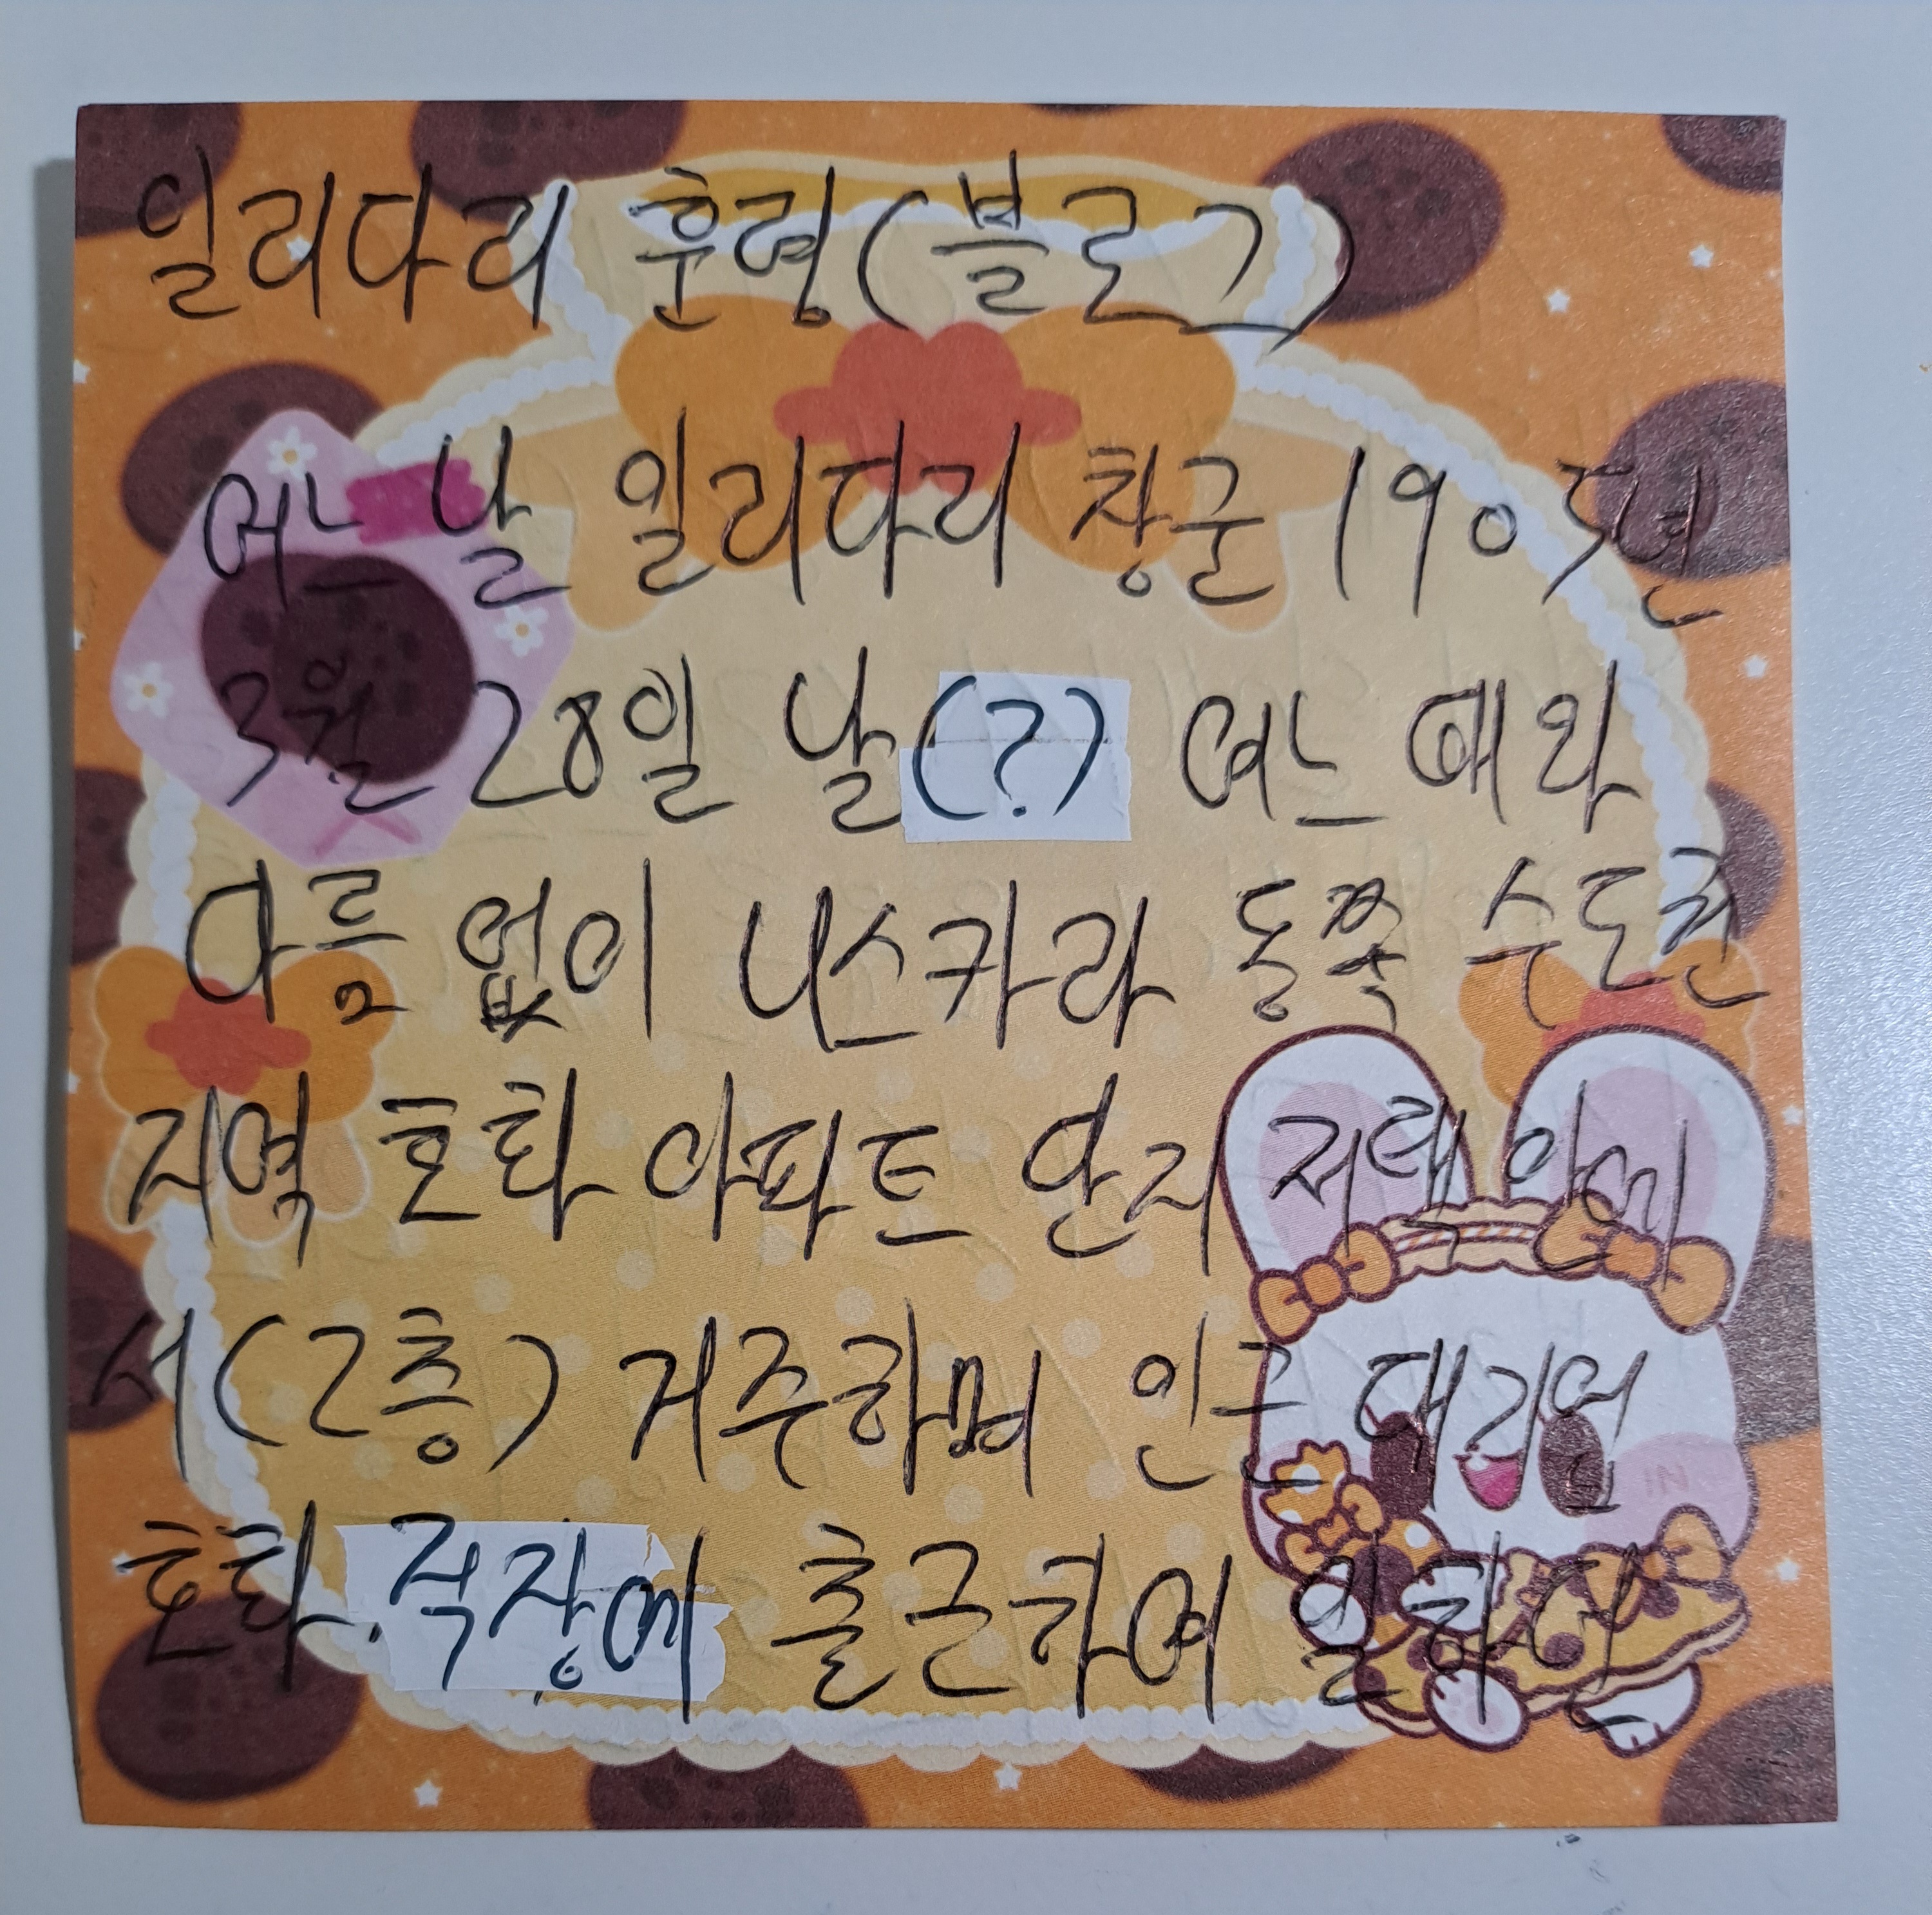 일리다리 훈령(블로그)
여느 날 일리다리 창군 1905년
3월 28일 날(?) 여느 때와
다름 없이 니스카라 동쪽 수도권
지역 호화 아파트 단지 저택 안에
서(2층) 거주하며 인근 대기업
호화.직장에 출근하여 일하여